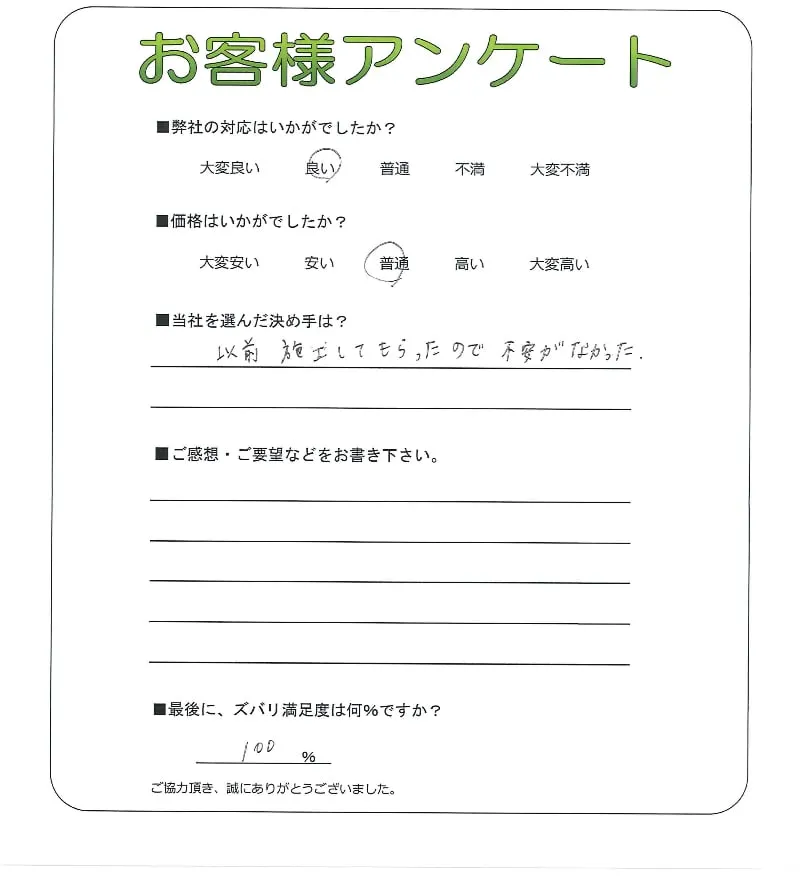 お客様アンケート
■弊社の対応はいかがでしたか？
大変良い 良い 普通 不満 大変不満
■価格はいかがでしたか？
大変安い 安い 普通 高い 大変高い
■当社を選んだ決め手は？
以前 施工してもらったので 不安がなかった.
■ご感想・ご要望などをお書き下さい。
■最後に、ズバリ満足度は何％ですか？
100 %
ご協力頂き、誠にありがとうございました。